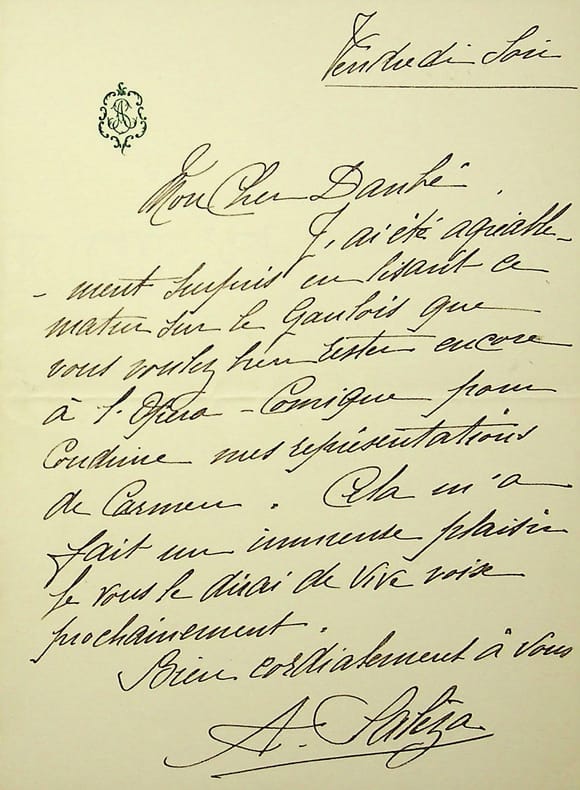 Vendredi Soir
AS
Mon Cher Danbé,
J'ai été agréable-
- ment surpris en lisant ce
matin sur le Gaulois que
vous voulez bien rester encore
à l'Opéra-Comique pour
conduire mes représentations
de Carmen. Cela m'a
fait un immense plaisir
Je vous le dirai de vive voix
prochainement.
Bien cordialement à vous
A. Saléza